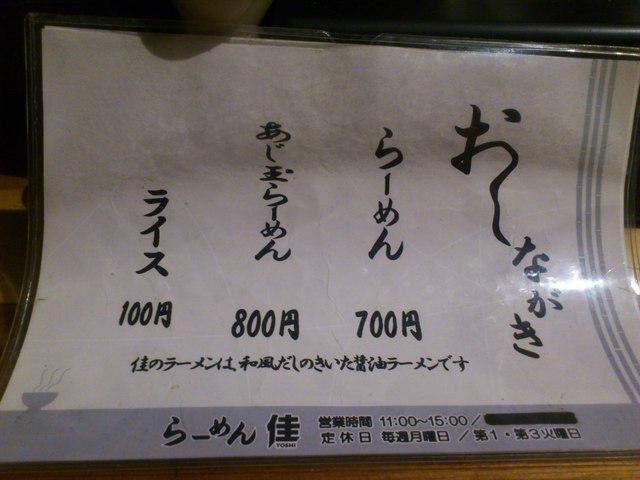 おしながき
らーめん
700円
あじ玉らーめん
800円
ライス
100円
佳のラーメンは、和風だしのきいた醤油ラーメンです
らーめん 佳
YOSHI
営業時間 11:00～15:00 /
定休日 毎週月曜日 / 第1・第3火曜日